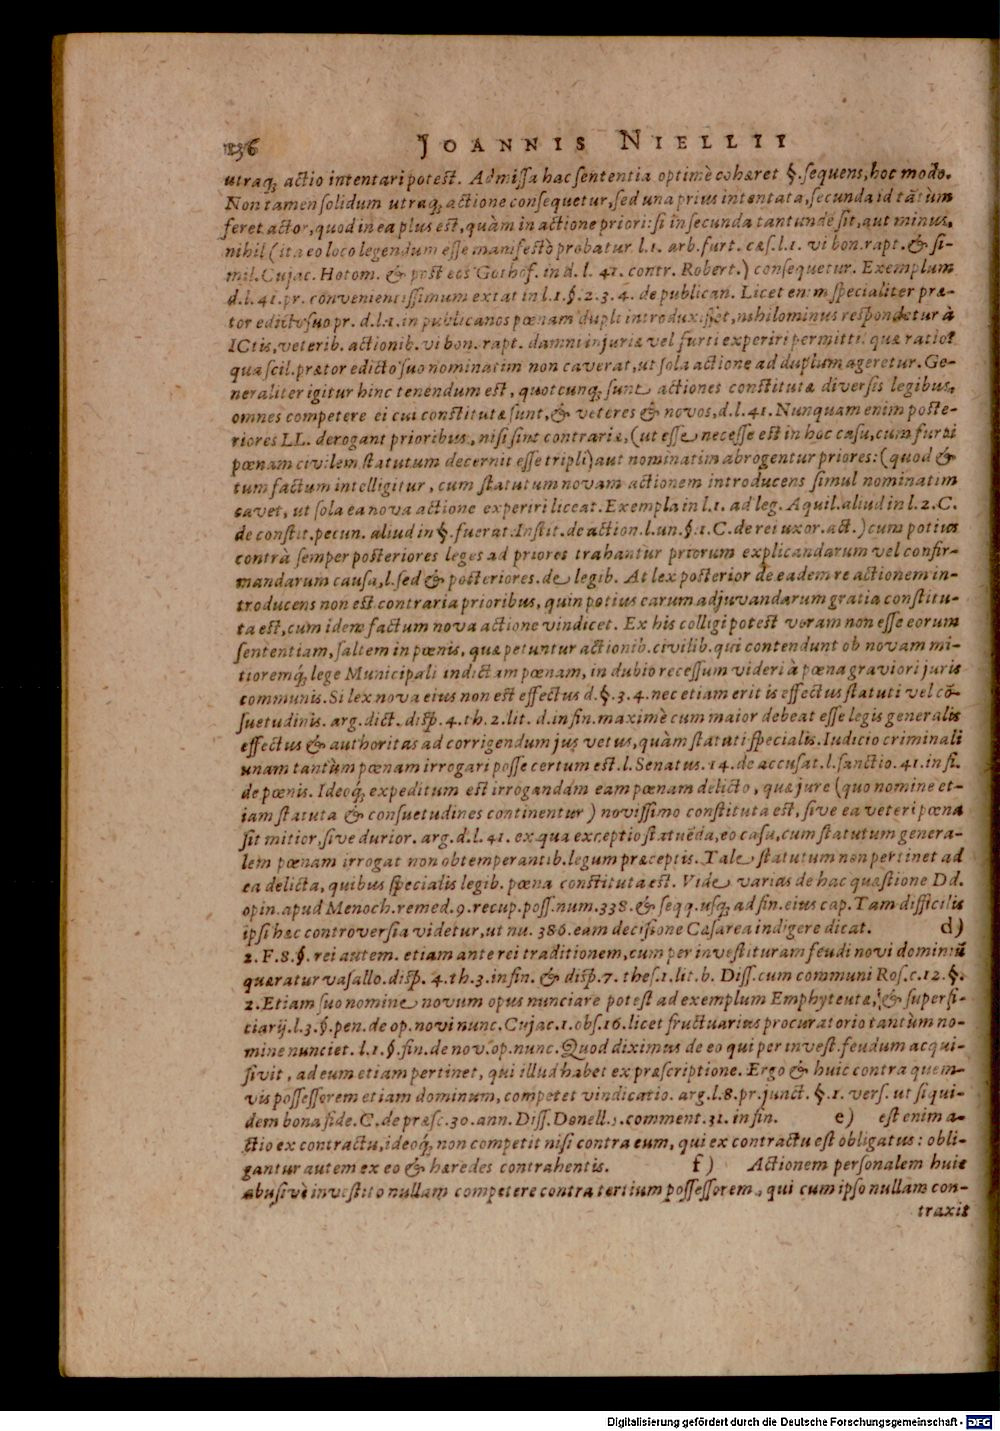 136 JOANNIS NIELLII
utraq; actio intentari potest. Admissa hac sententia optimè cohæret §. sequens, hoc modo.
Non tamen solidum utraq; actione consequetur, sed una prius intentata, secunda id tātùm
feret actor, quod in ea plus est, quàm in actione priori: si in secunda tantundē sit, aut minus,
nihil (ita eo loco legendum esse manifestò probatur l. 1. arb. furt. cæs. l. 1. vi bon. rapt. & si-
mil. Cujac. Hotom. & post eos Gothof. in d. l. 41. contr. Robert.) consequetur. Exemplum
d. l. 41. pr. convenientissimum extat in l. 1. §. 2. 3. 4. de publican. Licet enim specialiter præ-
tor edicto suo pr. d. l. 1. in publicanos pœnam dupli introduxisset, nihilominus respondetur à
ICtis, veterib. actionib. vi bon. rapt. damni injuriæ vel furti experiri permitti. quæ ratio?
quia scil. prætor edicto suo nominatim non caverat, ut sola actione ad duplum ageretur. Ge-
neraliter igitur hinc tenendum est, quotcunq; sunt actiones constitutæ diversis legibus,
omnes competere ei cui constitutæ sunt, & veteres & novos, d. l. 41. Nunquam enim poste-
riores LL. derogant prioribus, nisi sint contrariæ, (ut esse necesse est in hoc casu, cum furti
pœnam civilem statutum decernit esse tripli) aut nominatim abrogentur priores: (quod &
tum factum intelligitur, cum statutum novam actionem introducens simul nominatim
cavet, ut sola ea nova actione experiri liceat. Exempla in l. 1. ad leg. Aquil. aliud in l. 2. C.
de constit. pecun. aliud in §. fuerat. Instit. de action. l. un. §. 1. C. de rei uxor. act.) cum potius
contrà semper posteriores leges ad priores trahantur priorum explicandarum vel confir-
mandarum causa, l. sed & posteriores. de legib. At lex posterior de eadem re actionem in-
troducens non est contraria prioribus, quin potius earum adjuvandarum gratia constitu-
ta est, cum idem factum nova actione vindicet. Ex his colligi potest veram non esse eorum
sententiam, saltem in pœnis, quæ petuntur actionib. civilib. qui contendunt ob novam mi-
tioremq; lege Municipali indictam pœnam, in dubio recessum videri à pœna graviori juris
communis. Si lex nova eius non est effectus d. §. 3. 4. nec etiam erit is effectus statuti vel cō-
suetudinis. arg. dict. disp. 4. th. 2. lit. d. in fin. maximè cum maior debeat esse legis generalis
effectus & authoritas ad corrigendum jus vetus, quàm statuti specialis. Iudicio criminali
unam tantùm pœnam irrogari posse certum est. l. Senatus. 14. de accusat. l. sanctio. 41. in fi.
de pœnis. Ideoq; expeditum est irrogandam eam pœnam delicto, quæ jure (quo nomine et-
iam statuta & consuetudines continentur) novissimo constituta est, sive ea veteri pœna
sit mitior, sive durior. arg. d. l. 41. ex qua exceptio statuēda, eo casu, cum statutum genera-
lem pœnam irrogat non obtemperantib. legum præceptis. Tale statutum non pertinet ad
ea delicta, quibus specialis legib. pœna constituta est. Vide varias de hac quæstione Dd.
opin. apud Menoch. remed. 9. recup. poss. num. 338. & seqq. usq; ad fin. eius cap. Tam difficilis
ipsi hæc controversia videtur, ut nu. 386. eam decisione Cæsarea indigere dicat. d)
2. F. 8. §. rei autem. etiam ante rei traditionem, cum per investituram feudi novi dominiū
quæratur vasallo. disp. 4. th. 3. in fin. & disp. 7. thes. 1. lit. b. Diss. cum communi Ros. c. 12. §.
2. Etiam suo nomine novum opus nunciare potest ad exemplum Emphyteutæ, & superfi-
tiarij. l. 3. §. pen. de op. novi nunc. Cujac. 1. obs. 16. licet fructuarius procuratorio tantùm no-
mine nunciet. l. 1. §. fin. de nov. op. nunc. Quod diximus de eo qui per invest. feudum acqui-
sivit, ad eum etiam pertinet, qui illud habet ex præscriptione. Ergo & huic contra quem-
vis possessorem etiam dominum, competet vindicatio. arg. l. 8. pr. junct. §. 1. vers. ut si qui-
dem bona fide. C. de præsc. 30. ann. Diss. Donell. 5. comment. 31. in fin. e) est enim a-
ctio ex contractu, ideoq; non competit nisi contra eum, qui ex contractu est obligatus: obli-
gantur autem ex eo & hæredes contrahentis. f) Actionem personalem huic
abusivè investito nullam competere contra tertium possessorem, qui cum ipso nullam con-
traxit
Digitalisierung gefördert durch die Deutsche Forschungsgemeinschaft - DFG